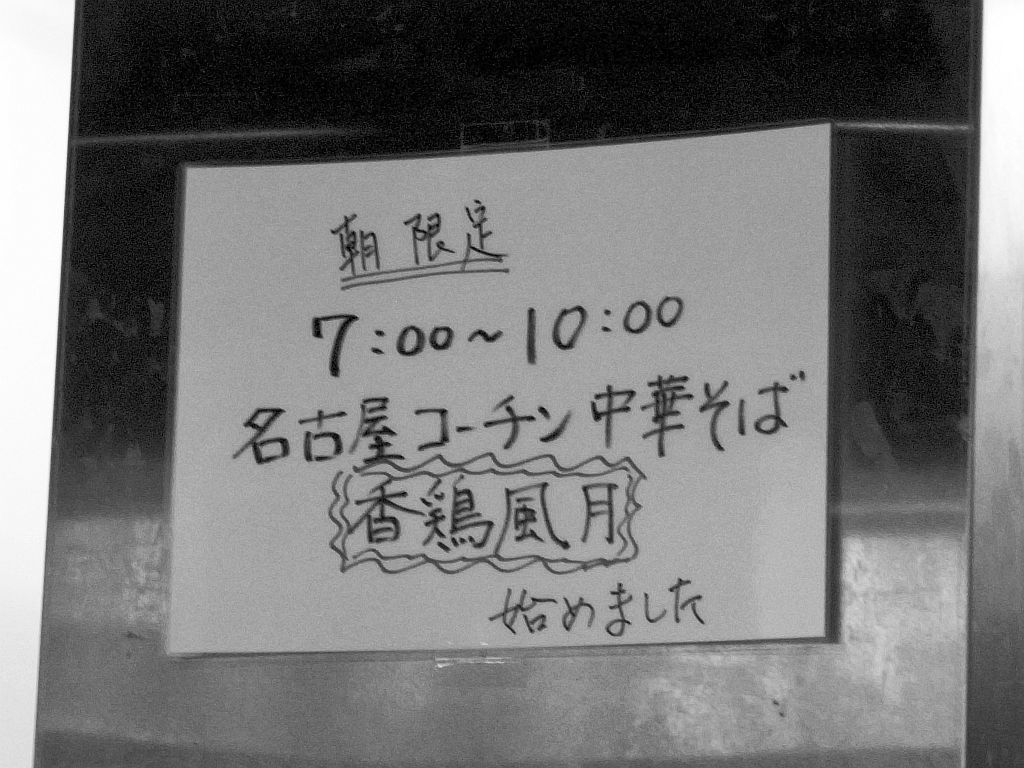 朝限定
7:00～10:00
名古屋コーチン中華そば
香鶏風月
始めました